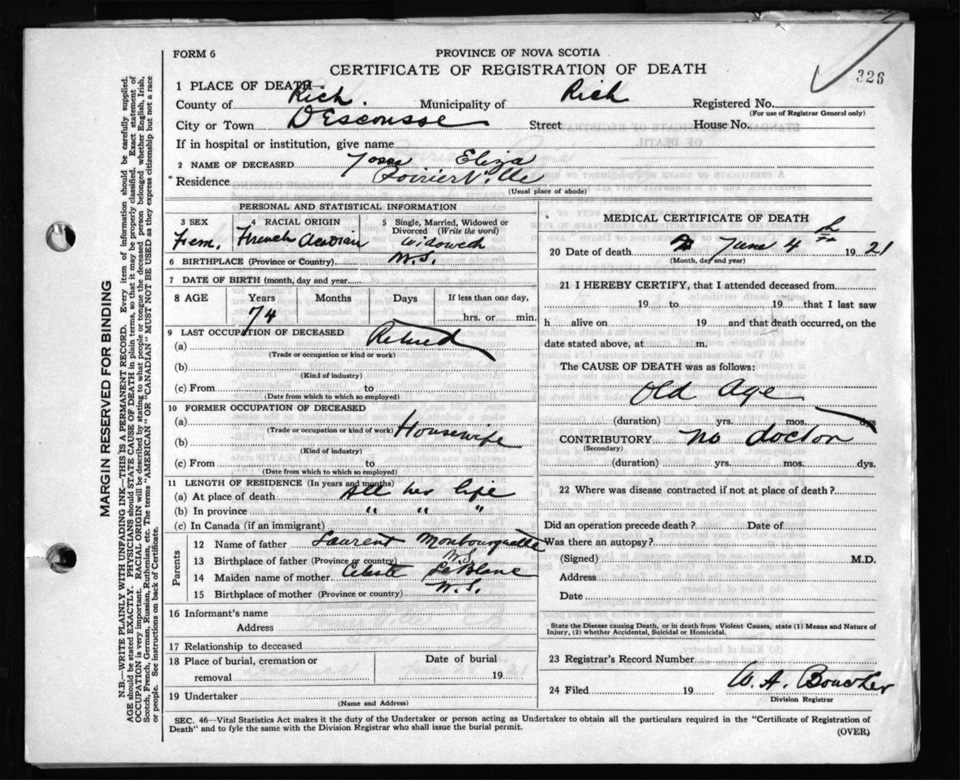 FORM 6
PROVINCE OF NOVA SCOTIA
CERTIFICATE OF REGISTRATION OF DEATH
326
1 PLACE OF DEATH
County of Rich. Municipality of Rich Registered No.
(For use of Registrar General only)
City or Town D'Escousse Street House No.
If in hospital or institution, give name
2 NAME OF DECEASED Eliza
Residence PoirierVille
(Usual place of abode)
PERSONAL AND STATISTICAL INFORMATION
3 SEX 4 RACIAL ORIGIN 5 Single, Married, Widowed or Divorced (Write the word)
Fem. French Acadian Widowed
6 BIRTHPLACE (Province or Country) N.S.
7 DATE OF BIRTH (month, day and year)
8 AGE Years Months Days If less than one day,
74 hrs. or min.
9 LAST OCCUPATION OF DECEASED
(a) Retired
(Trade or occupation or kind or work)
(b)
(Kind of industry)
(c) From to
(Date from which to which so employed)
10 FORMER OCCUPATION OF DECEASED
(a)
(Trade or occupation or kind of work)
(b) Housewife
(Kind of industry)
(c) From to
(Date from which to which so employed)
11 LENGTH OF RESIDENCE (In years and months)
(a) At place of death All her life
(b) In province " " "
(c) In Canada (if an immigrant)
Parents
12 Name of father Laurent Monbourquette
13 Birthplace of father (Province or country) N.S.
14 Maiden name of mother Celeste LeBlanc
15 Birthplace of mother (Province or country) N.S.
16 Informant's name
Address
17 Relationship to deceased
18 Place of burial, cremation or removal Date of burial
19 21
19 Undertaker
(Name and Address)
MEDICAL CERTIFICATE OF DEATH
20 Date of death June 4 1921
(Month, day and year)
21 I HEREBY CERTIFY, that I attended deceased from
19 to 19 that I last saw
h alive on 19 and that death occurred, on the
date stated above, at m.
The CAUSE OF DEATH was as follows:
Old Age
(duration) yrs. mos. dys.
CONTRIBUTORY no doctor
(Secondary)
(duration) yrs. mos. dys.
22 Where was disease contracted if not at place of death?
Did an operation precede death? Date of
Was there an autopsy?
(Signed) M.D.
Address
Date
State the Disease causing Death, or in death from Violent Causes, state (1) Means and Nature of
Injury, (2) whether Accidental, Suicidal or Homicidal.
23 Registrar's Record Number
24 Filed 19 W. A. Boucher
Division Registrar
SEC. 46—Vital Statistics Act makes it the duty of the Undertaker or person acting as Undertaker to obtain all the particulars required in the "Certificate of Registration of
Death" and to fyle the same with the Division Registrar who shall issue the burial permit.
(OVER)
MARGIN RESERVED FOR BINDING
N.B.—WRITE PLAINLY WITH UNFADING INK—THIS IS A PERMANENT RECORD. Every item of information should be carefully supplied.
AGE should be stated EXACTLY. PHYSICIANS should STATE CAUSE OF DEATH in plain terms, so that it may be properly classified. Exact statement of
OCCUPATION is very important. RACIAL ORIGIN will be described by stating to what people or tongue the deceased person belonged whether English, Irish,
Scotch, French, German, Russian, Ruthenian, etc. The terms "AMERICAN" OR "CANADIAN" MUST NOT BE USED as they express citizenship but not a race
or people. See instructions on back of Certificate.